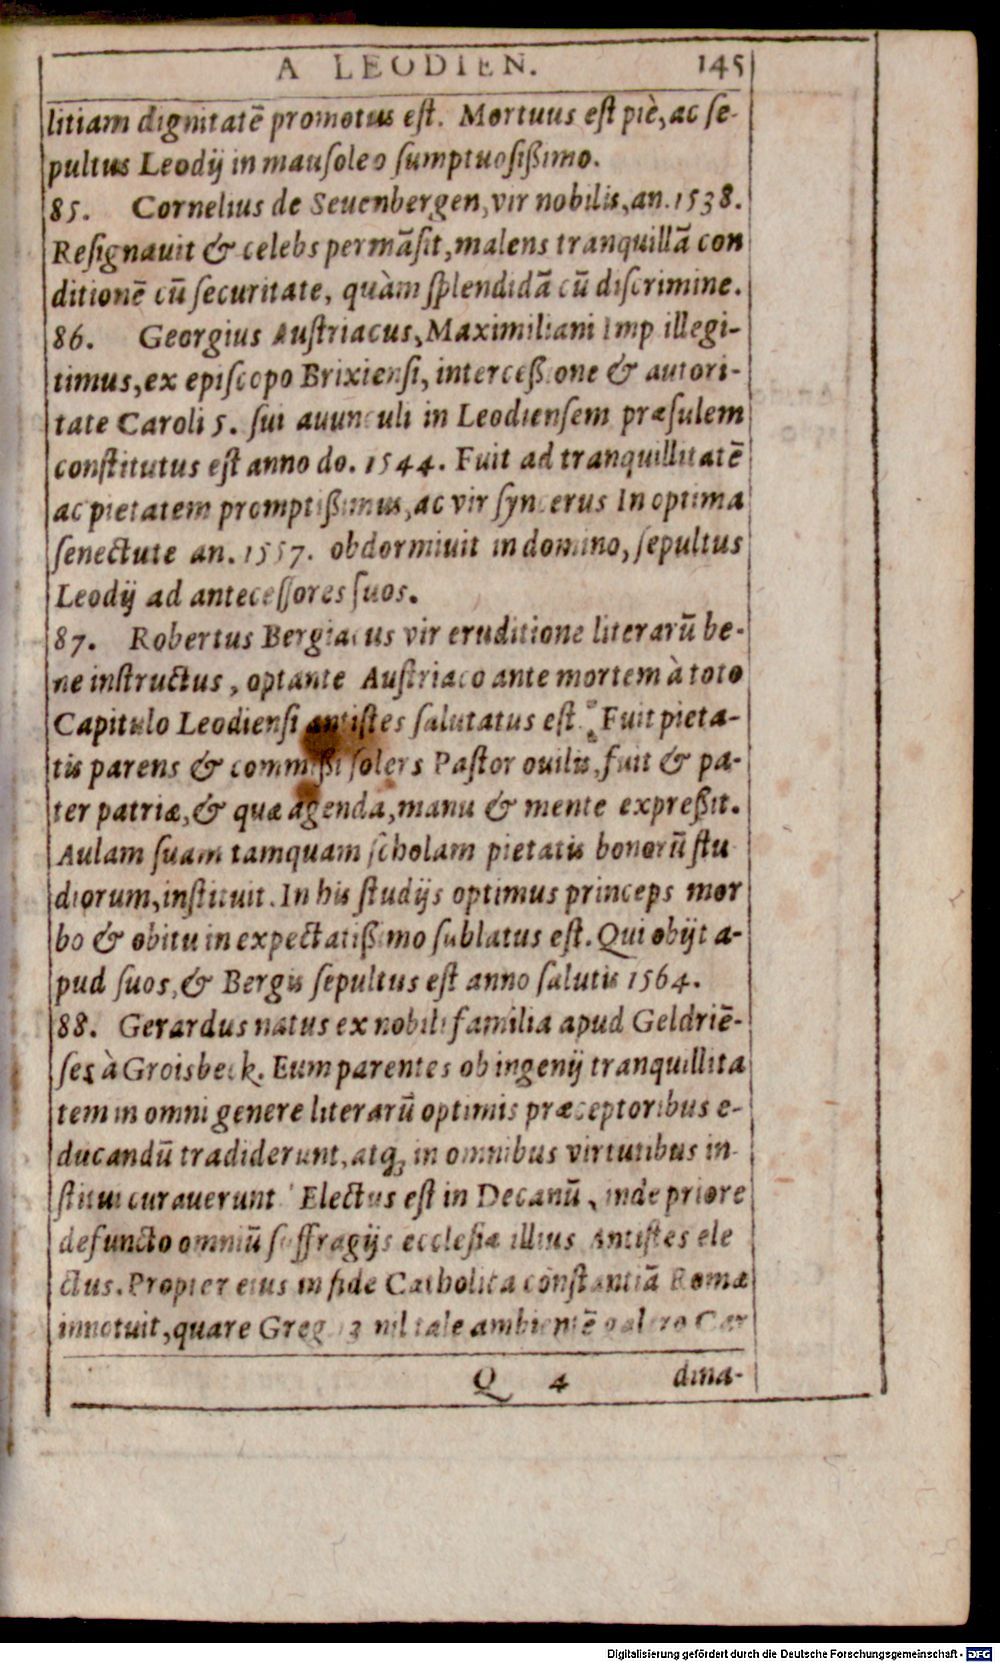 A LEODIEN. 145
litiam dignitatē promotus eſt. Mortuus eſt piè, ac ſe-
pultus Leodij in mauſoleo ſumptuoſißimo.
85. Cornelius de Seuenbergen, vir nobilis, an. 1538.
Reſignauit & celebs permāſit, malens tranquillā con
ditionē cū ſecuritate, quàm ſplendidā cū diſcrimine.
86. Georgius Auſtriacus, Maximiliani Imp illegi-
timus, ex epiſcopo Brixienſi, interceßione & autori-
tate Caroli 5. ſui auunculi in Leodienſem præſulem
conſtitutus eſt anno do. 1544. Fuit ad tranquillitatē
ac pietatem promptißimus, ac vir ſyncerus In optima
ſenectute an. 1557. obdormiuit in domino, ſepultus
Leodij ad anteceſſores ſuos.
87. Robertus Bergiacus vir eruditione literarū be-
ne inſtructus, optante Auſtriaco ante mortem à toto
Capitulo Leodienſi antiſtes ſalutatus eſt. Fuit pieta-
tis parens & commißi ſolers Paſtor ouilis, fuit & pa-
ter patriæ, & quæ agenda, manu & mente expreßit.
Aulam ſuam tamquam ſcholam pietatis bonorū ſtu
diorum, inſtituit. In his ſtudijs optimus princeps mor
bo & obitu in expectatißimo ſublatus eſt. Qui obijt a-
pud ſuos, & Bergis ſepultus eſt anno ſalutis 1564.
88. Gerardus natus ex nobili familia apud Geldriē-
ſes à Groisbeck. Eum parentes ob ingenij tranquillita
tem in omni genere literarū optimis præceptoribus e-
ducandū tradiderunt, atq; in omnibus virtutibus in-
ſtitui curauerunt Electus eſt in Decanū, inde priore
defuncto omniū ſuffragijs eccleſiæ illius Antiſtes ele
ctus. Propter eius in fide Catholica conſtantiā Romæ
innotuit, quare Greg. 13 nil tale ambientē galero Car
Q 4 dina-
Digitalisierung gefördert durch die Deutsche Forschungsgemeinschaft - DFG